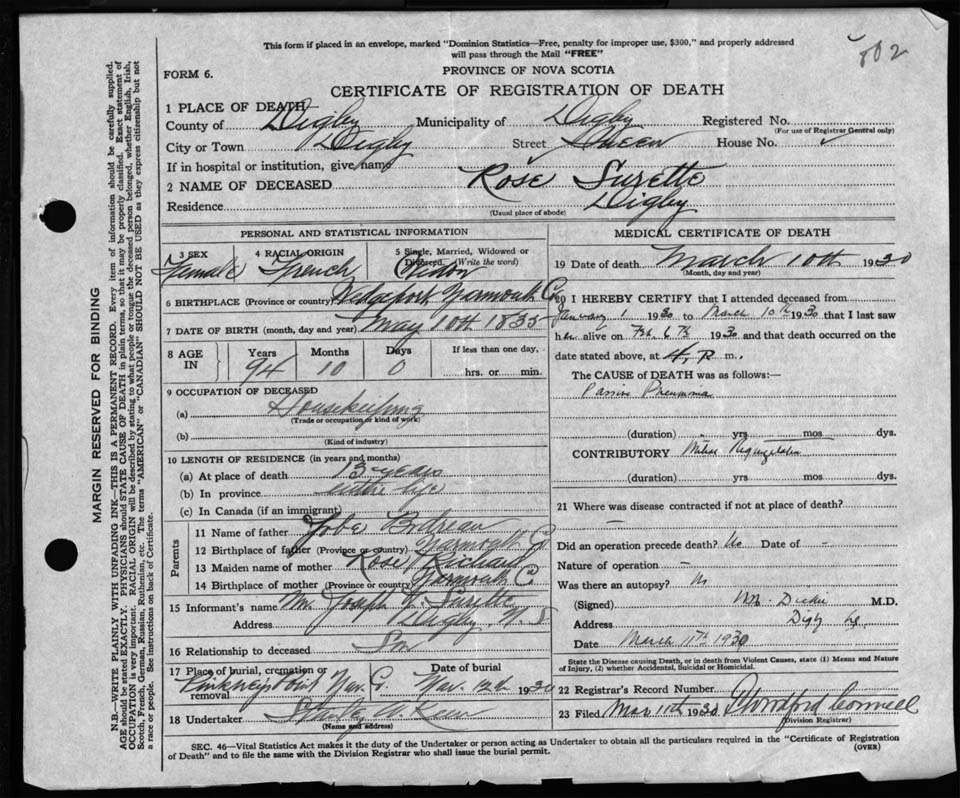 This form if placed in an envelope, marked "Dominion Statistics—Free, penalty for improper use, $300," and properly addressed
will pass through the Mail "FREE"
802
FORM 6.
PROVINCE OF NOVA SCOTIA
CERTIFICATE OF REGISTRATION OF DEATH
1 PLACE OF DEATH
County of Digby Municipality of Digby Registered No.
(For use of Registrar General only)
City or Town Digby Street Queen House No. ✓
If in hospital or institution, give name ✓
2 NAME OF DECEASED Rose Surette
Residence Digby
(Usual place of abode)
PERSONAL AND STATISTICAL INFORMATION
3 SEX 4 RACIAL ORIGIN 5 Single, Married, Widowed or
Divorced. (Write the word)
Female French Widow
6 BIRTHPLACE (Province or country) Wedgeport Yarmouth Co
7 DATE OF BIRTH (month, day and year) May 10th 1835
8 AGE IN Years Months Days If less than one day,
94 10 0 hrs. or min.
9 OCCUPATION OF DECEASED
(a) Housekeeping
(Trade or occupation or kind of work)
(b)
(Kind of industry)
10 LENGTH OF RESIDENCE (in years and months)
(a) At place of death 13 years
(b) In province entire life
(c) In Canada (if an immigrant)
Parents
11 Name of father Bodreau
12 Birthplace of father (Province or country) Yarmouth Co
13 Maiden name of mother Rose Richard
14 Birthplace of mother (Province or country Yarmouth Co
15 Informant's name Mr. Joseph Surette
Address Digby, N. S
16 Relationship to deceased Son
17 Place of burial, cremation or removal Date of burial
Point Yar. Co. Mar. 12th 1930
18 Undertaker
(Name and address)
MEDICAL CERTIFICATE OF DEATH
19 Date of death March 10th 1930
(Month, day and year)
20 I HEREBY CERTIFY that I attended deceased from
January 1 1930 to March 10th 1930 that I last saw
her alive on Feb. 6th 1930 and that death occurred on the
date stated above, at 4 p. m.
The CAUSE of DEATH was as follows:—
Passive Pneumonia
(duration) yrs mos dys.
CONTRIBUTORY Mitral Regurgitation
(duration) yrs. mos. dys.
21 Where was disease contracted if not at place of death?
—
Did an operation precede death? No Date of -
Nature of operation -
Was there an autopsy? No
(Signed) Dickie M.D.
Address Digby
Date March 11th 1930
State the Disease causing Death, or in death from Violent Causes, state (1) Means and Nature
of Injury, (2) whether Accidental, Suicidal or Homicidal.
22 Registrar's Record Number
23 Filed Mar 11th 1930
(Division Registrar)
SEC. 46—Vital Statistics Act makes it the duty of the Undertaker or person acting as Undertaker to obtain all the particulars required in the "Certificate of Registration
of Death" and to file the same with the Division Registrar who shall issue the burial permit.
(OVER)
MARGIN RESERVED FOR BINDING
N.B.—WRITE PLAINLY WITH UNFADING INK—THIS IS A PERMANENT RECORD. Every item of information should be carefully supplied.
AGE should be stated EXACTLY. PHYSICIANS should STATE CAUSE OF DEATH in plain terms, so that it may be properly classified. Exact statement of
OCCUPATION is very important. RACIAL ORIGIN will be described by stating to what people or tongue the deceased person belonged, whether English, Irish,
Scotch, French, German, Russian, Ruthenian, etc. The terms "AMERICAN" or "CANADIAN" SHOULD NOT BE USED as they express citizenship but not
a race or people. See instructions on back of Certificate.